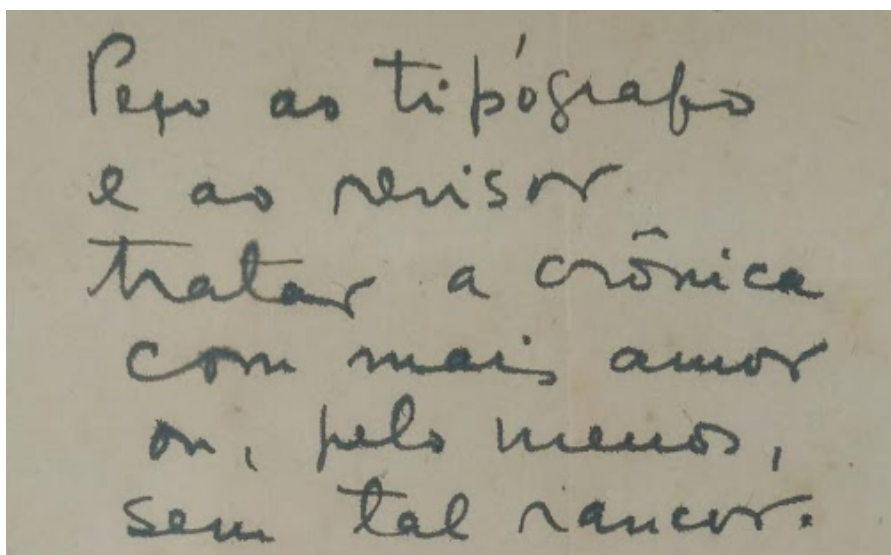 Peço ao tipógrafo
e ao revisor
tratar a crônica
com mais amor
ou, pelo menos,
sem tal rancor.